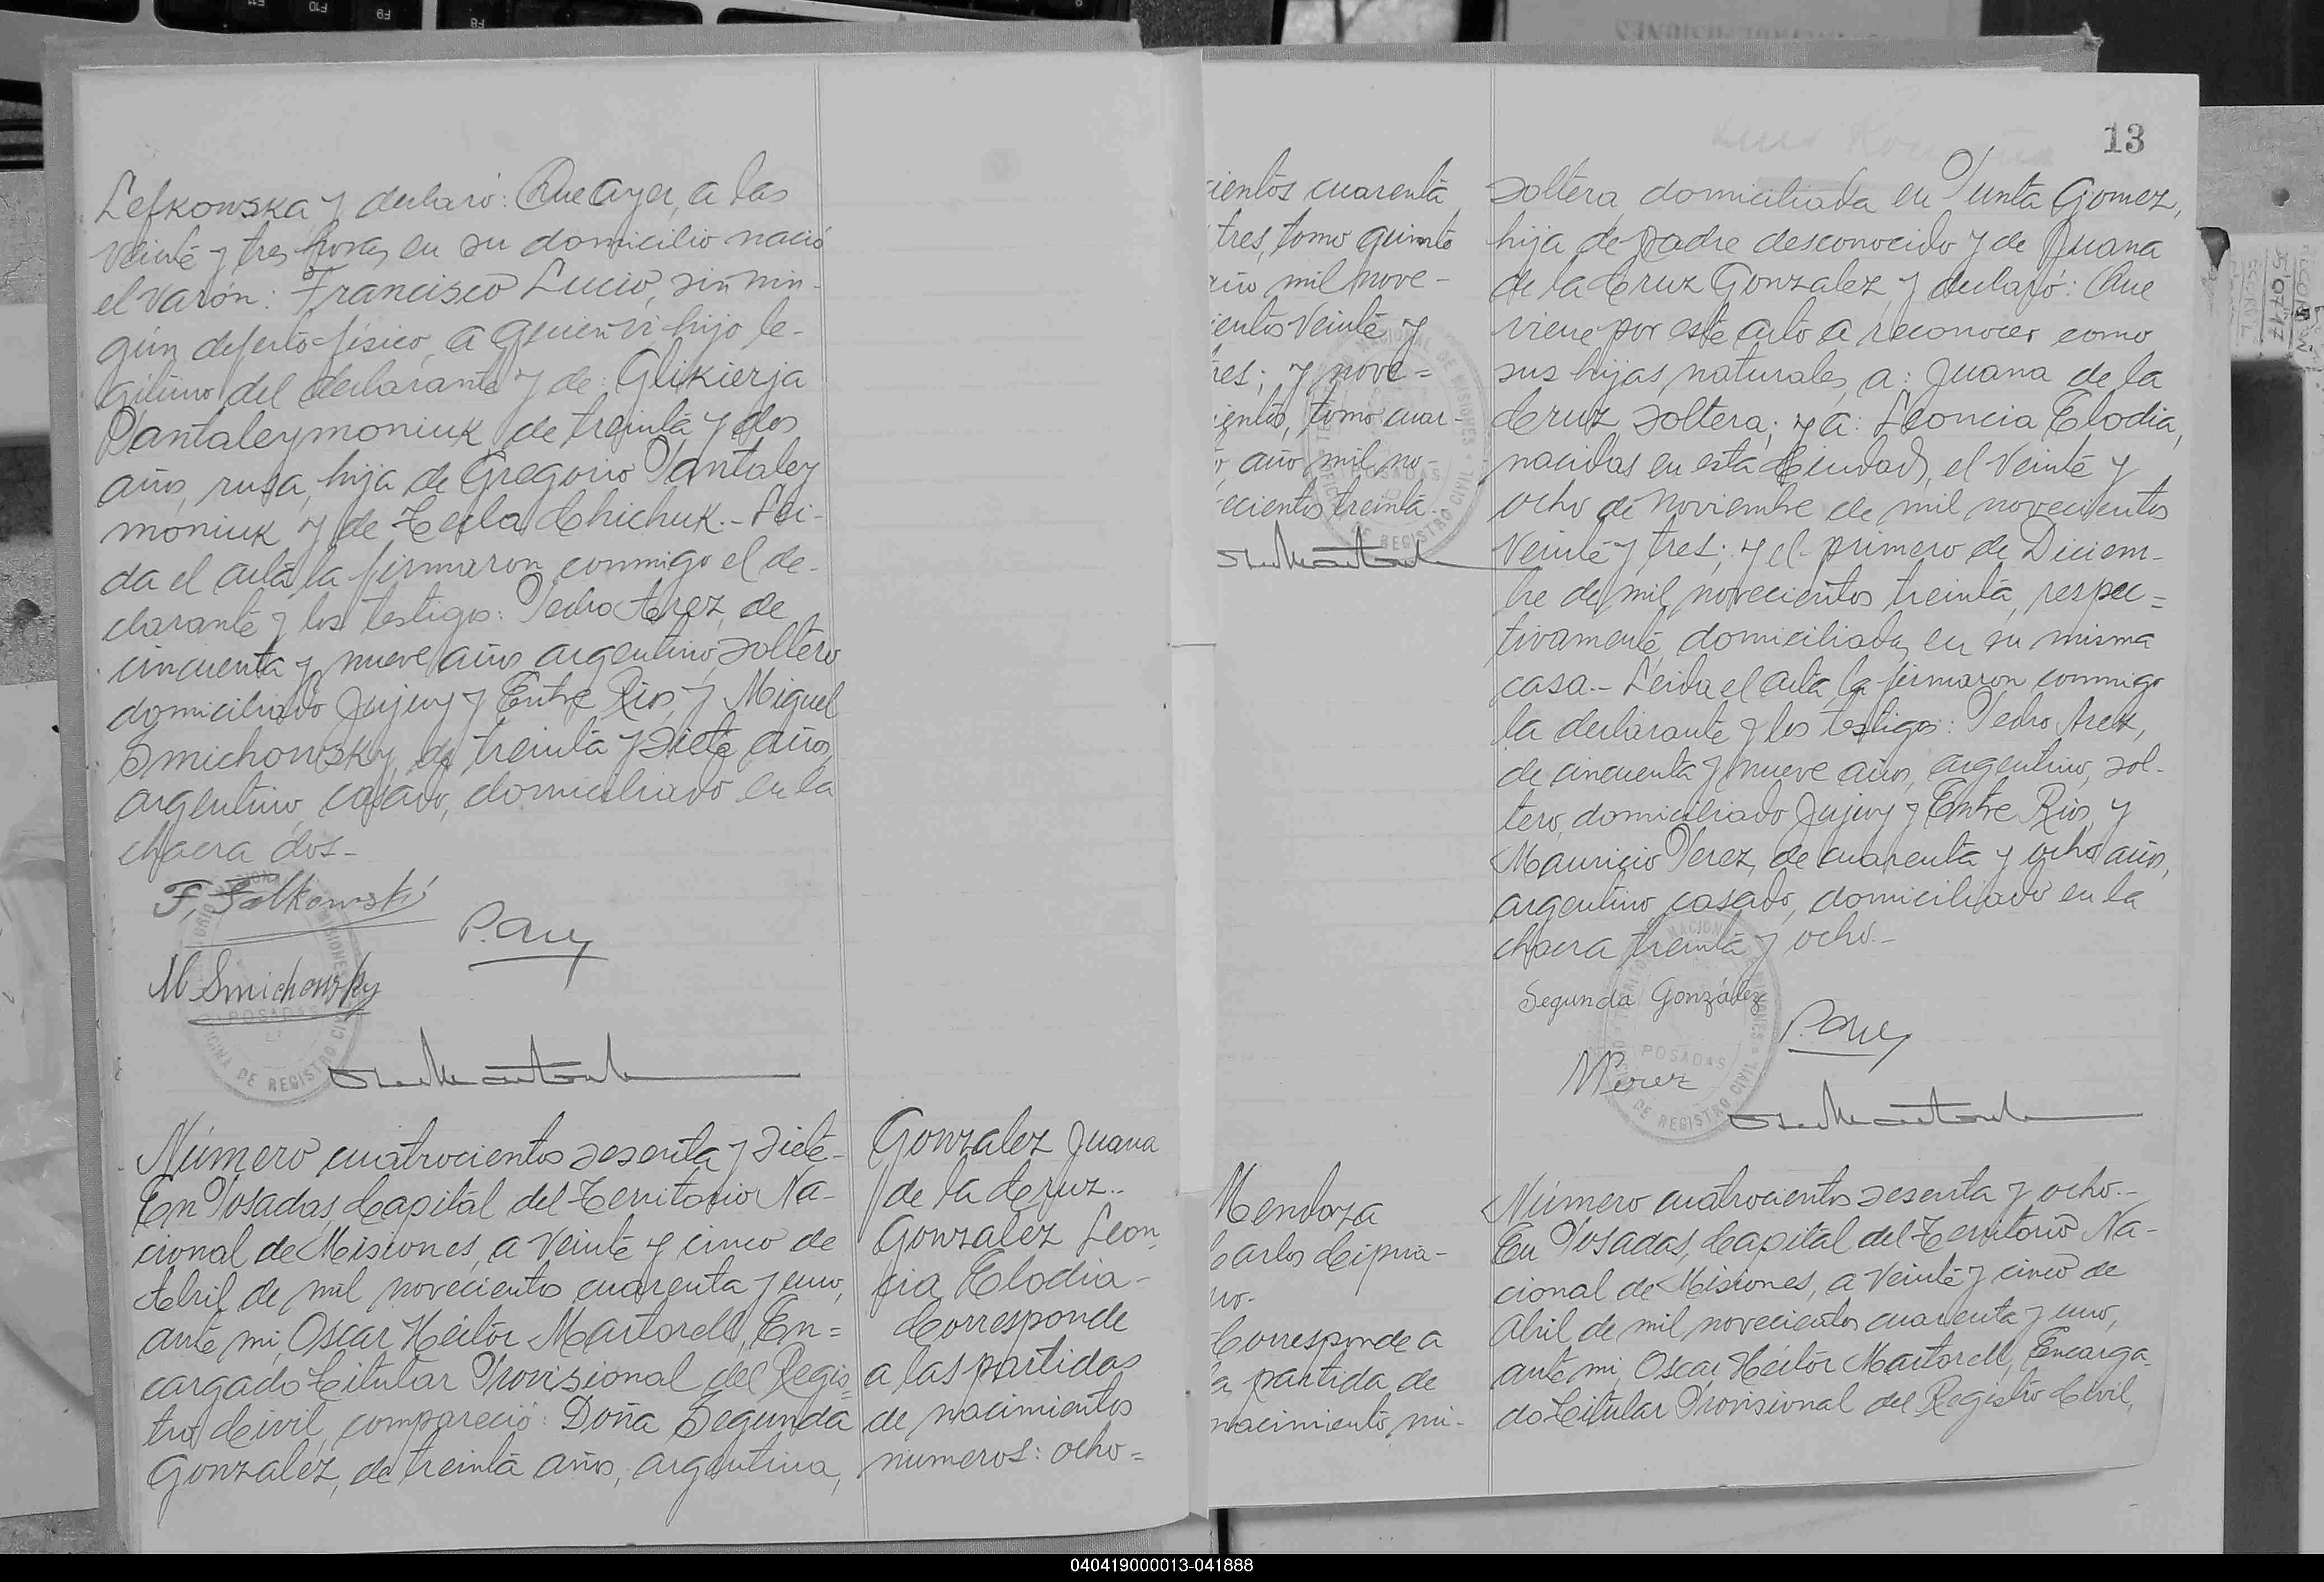 Lefkowska y declaró: Que ayer, a las
veinte y tres horas, en su domicilio nació
el varón: Francisco Lucio, sin nin-
gún defecto físico, a quien vi hijo le-
gitimo del declarante y de: Glikierja
Pantaleymoniuk, de treinta y dos
años, rusa, hija de Gregorio Pantaley
moniuk y de Tecla Chichuk.- Lei-
da el acta la firmaron conmigo el de-
clarante y los testigos: Pedro Arez, de
cincuenta y nueve años argentino, soltero
domiciliado Jujuy y Entre Rios, y Miguel
Smichowsky, de treinta y siete años,
argentino, casado, domiciliado en la
chacra dos-
F. Falkowski
P. Arez
M Smichowsky
POSADAS
OFICINA DE REGISTRO CIVIL
Número cuatrocientos sesenta y siete-
En Posadas, Capital del Territorio Na-
cional de Misiones, a veinte y cinco de
Abril de mil novecientos cuarenta y uno,
ante mi, Oscar Héctor Martorell, En=
cargado Titular Provisional del Regis=
tro Civil, compareció: Doña Segunda
Gonzalez, de treinta años, argentina,
Gonzalez Juana
de la Cruz.-
Gonzalez Leon
cia Elodia-
Corresponde
a las partidas
de nacimientos
numeros: ocho=
cientos cuarenta
tres, tomo quinto
año mil nove-
cientos veinte y
tres; y nove=
cientos, tomo cuar-
o, año mil no-
vecientos treinta.-
13
soltera, domiciliada en Punta Gomez,
hija de padre desconocido y de Juana
de la Cruz Gonzalez, y declaró: Que
viene por este acto a reconocer como
sus hijas naturales, a: Juana de la
Cruz soltera; y a: Leoncia Elodia,
nacidas en esta Ciudad, el veinte y
ocho de noviembre de mil novecientos
veinte y tres; y el primero de Diciem-
bre de mil novecientos treinta, respec=
tivamente, domiciliadas en su misma
casa.- Leida el acta, la firmaron conmigo
la declarante y los testigos: Pedro Arez,
de cincuenta y nueve años, argentino, sol-
tero, domiciliado Jujuy y Entre Rios, y
Mauricio Perez, de cuarenta y ocho años,
argentino, casado, domiciliado en la
chacra treinta y ocho.-
Segunda González
P. Arez
MPerez
POSADAS
DE REGISTRO CIVIL
Mendoza
Carlos Cipria-
no.-
Corresponde a
la partida de
nacimiento nú-
Número cuatrocientos sesenta y ocho.-
En Posadas, Capital del Territorio Na-
cional de Misiones, a veinte y cinco de
Abril de mil novecientos cuarenta y uno,
ante mi, Oscar Héctor Martorell, Encarga-
do Titular Provisional del Registro Civil,
040419000013-041888